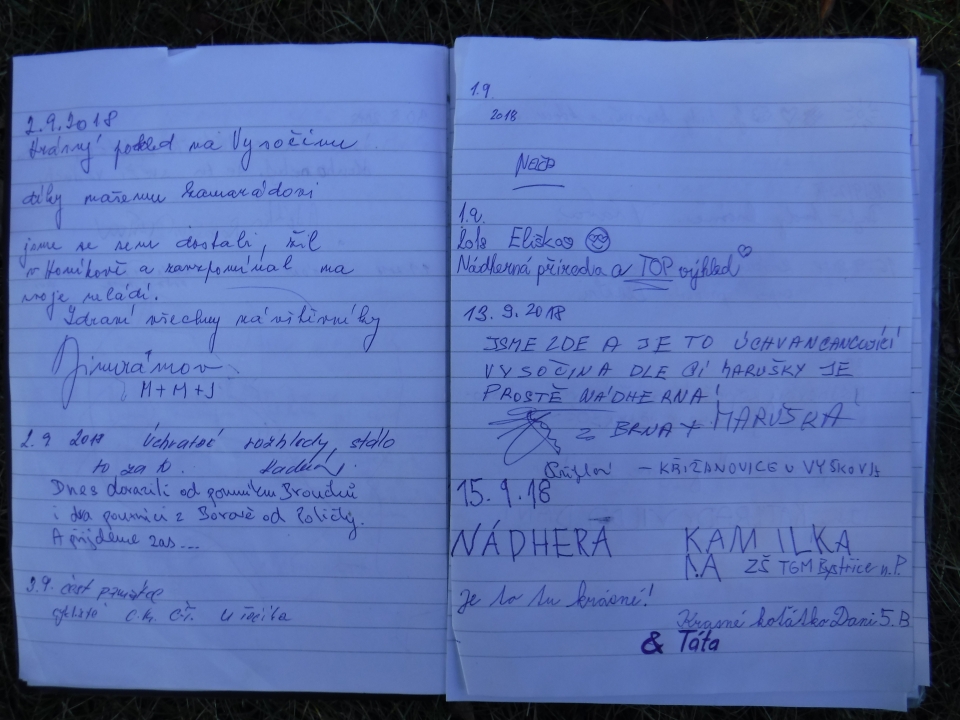 2.9.2018
Krásný pohled na Vysočinu
díky našemu kamarádovi
jsme se sem dostali, žil
v a zavzpomínal na
svoje mládí.
Zdraví všechny návštěvníky
Jimramov
M+M+J
2.9 2018 Úchvatné rozhledy, stálo
to za to.
Dnes dorazili od pomníku Broučků
i dva poutníci z Borové od Poličky.
A přijdeme zas...
3.9. čest památce
1.9
2018
1.9.
2018 Eliška
Nádherná příroda a TOP výhled
13.9.2018
JSME ZDE A JE TO
VYSOČINA DLE MARUŠKY JE
PROSTĚ NÁDHERNÁ!
Z BRNA + MARUŠKA
– KŘIŽANOVICE U VYŠKOVA
15.9.18
NÁDHERA KAMILKA
ZŠ TGM Bystřice n.P.
Je to tu krásné!
Krásné koťátko Dani 5.B
& Táta